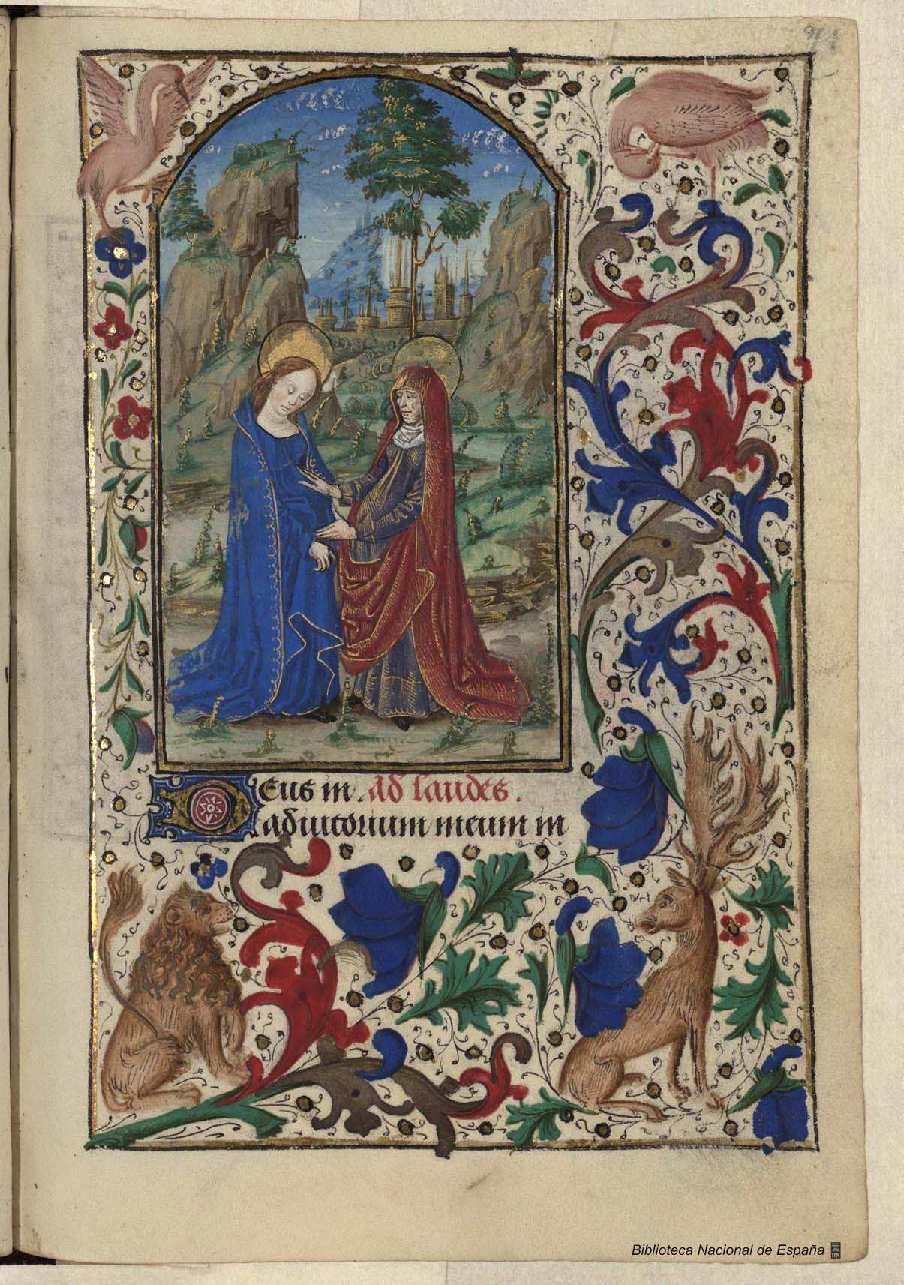 Deus in. Ad laudes.
adiutorium meum in
Biblioteca Nacional de España